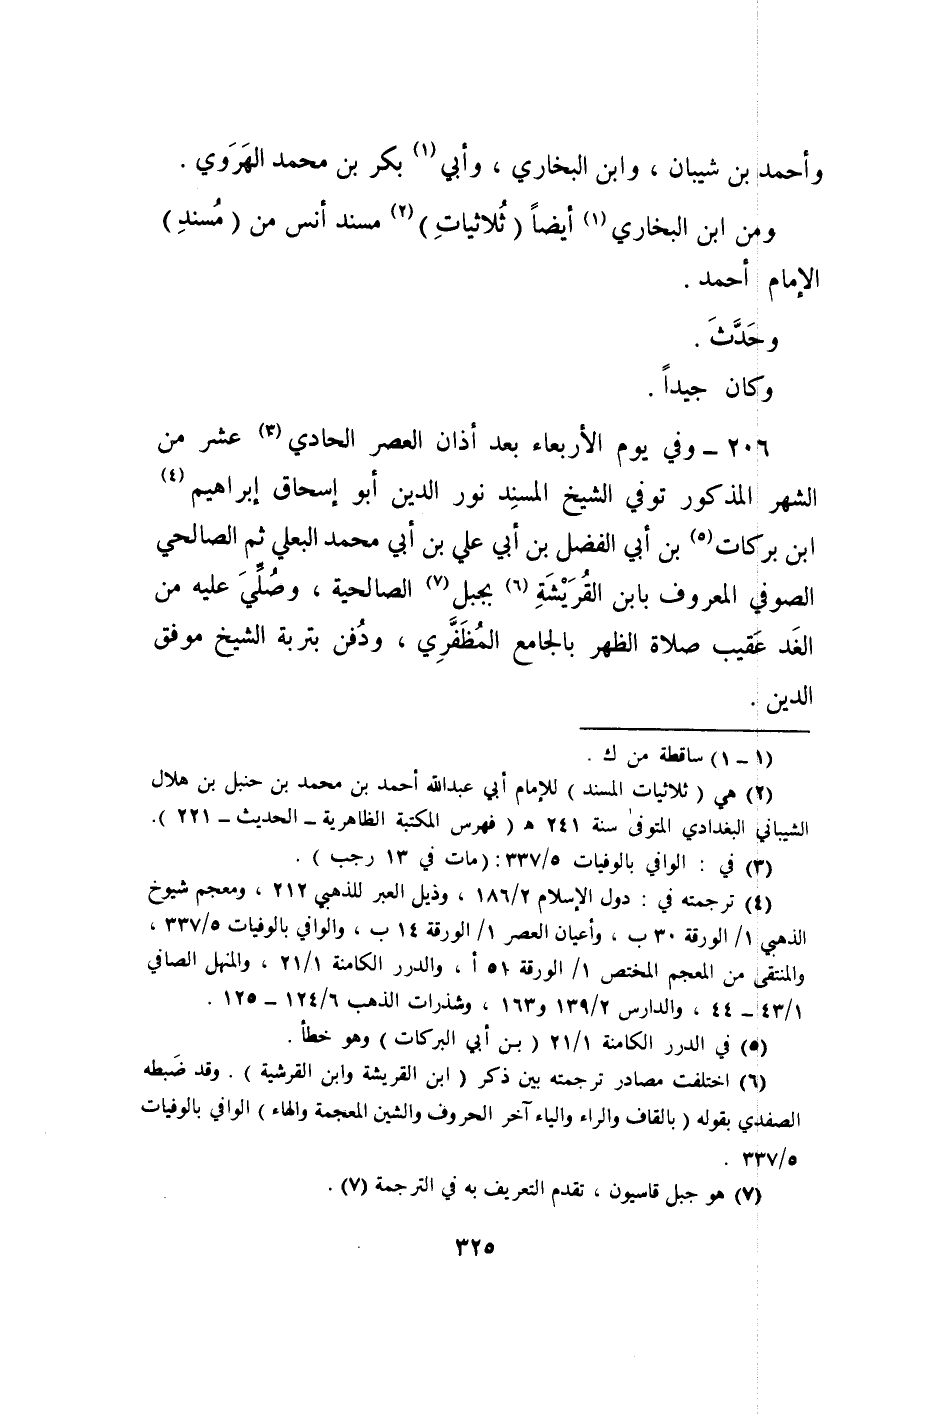 وأحمد بن شيبان ، وابن البخاري ، وأبي(١) بكر بن محمد الهَرَوي .
ومن ابن البخاري(١) أيضاً ( ثُلاثياتِ )(٢) مسند أنس من ( مُسندِ )
الإمام أحمد .
وحَدَّثَ .
وكان جيداً .
٢٠٦ ـ وفي يوم الأربعاء بعد أذان العصر الحادي(٣) عشر من
الشهر المذكور توفي الشيخ المسنِد نور الدين أبو إسحاق إبراهيم(٤)
ابن بركات(٥) بن أبي الفضل بن أبي علي بن أبي محمد البعلي ثم الصالحي
الصوفي المعروف بابن القُرَيْشَةِ(٦) بجبل(٧) الصالحية ، وصُلِّيَ عليه من
الغَد عَقيب صلاة الظهر بالجامع المُظَفَّرِي ، ودُفن بتربة الشيخ موفق
الدين .
(١ ـ ١) ساقطة من ك .
(٢) هي ( ثلاثيات المسند ) للإمام أبي عبدالله أحمد بن محمد بن حنبل بن هلال
الشيباني البغدادي المتوفى سنة ٢٤١ ه ( فهرس المكتبة الظاهرية ـ الحديث ـ ٢٢١ ).
(٣) في : الوافي بالوفيات ٣٣٧/٥: (مات في ١٣ رجب ) .
(٤) ترجمته في : دول الإسلام ١٨٦/٢ ، وذيل العبر للذهبي ٢١٢ ، ومعجم شيوخ
الذهبي ١/ الورقة ٣٠ ب ، وأعيان العصر ١/ الورقة ١٤ ب ، والوافي بالوفيات ٣٣٧/٥ ،
والمنتقى من المعجم المختص ١/ الورقة ٥١ أ ، والدرر الكامنة ٢١/١ ، والمنهل الصافي
٤٣/١ ـ ٤٤ ، والدارس ١٣٩/٢ و١٦٣ ، وشذرات الذهب ١٢٤/٦ ـ ١٢٥ .
(٥) في الدرر الكامنة ٢١/١ ( بن أبي البركات ) وهو خطأ .
(٦) اختلفت مصادر ترجمته بين ذكر ( ابن القريشة وابن القرشية ) . وقد ضَبطه
الصفدي بقوله ( بالقاف والراء والياء آخر الحروف والشين المعجمة والهاء ) الوافي بالوفيات
٣٣٧/٥ .
(٧) هو جبل قاسيون ، تقدم التعريف به في الترجمة (٧) .
٣٢٥